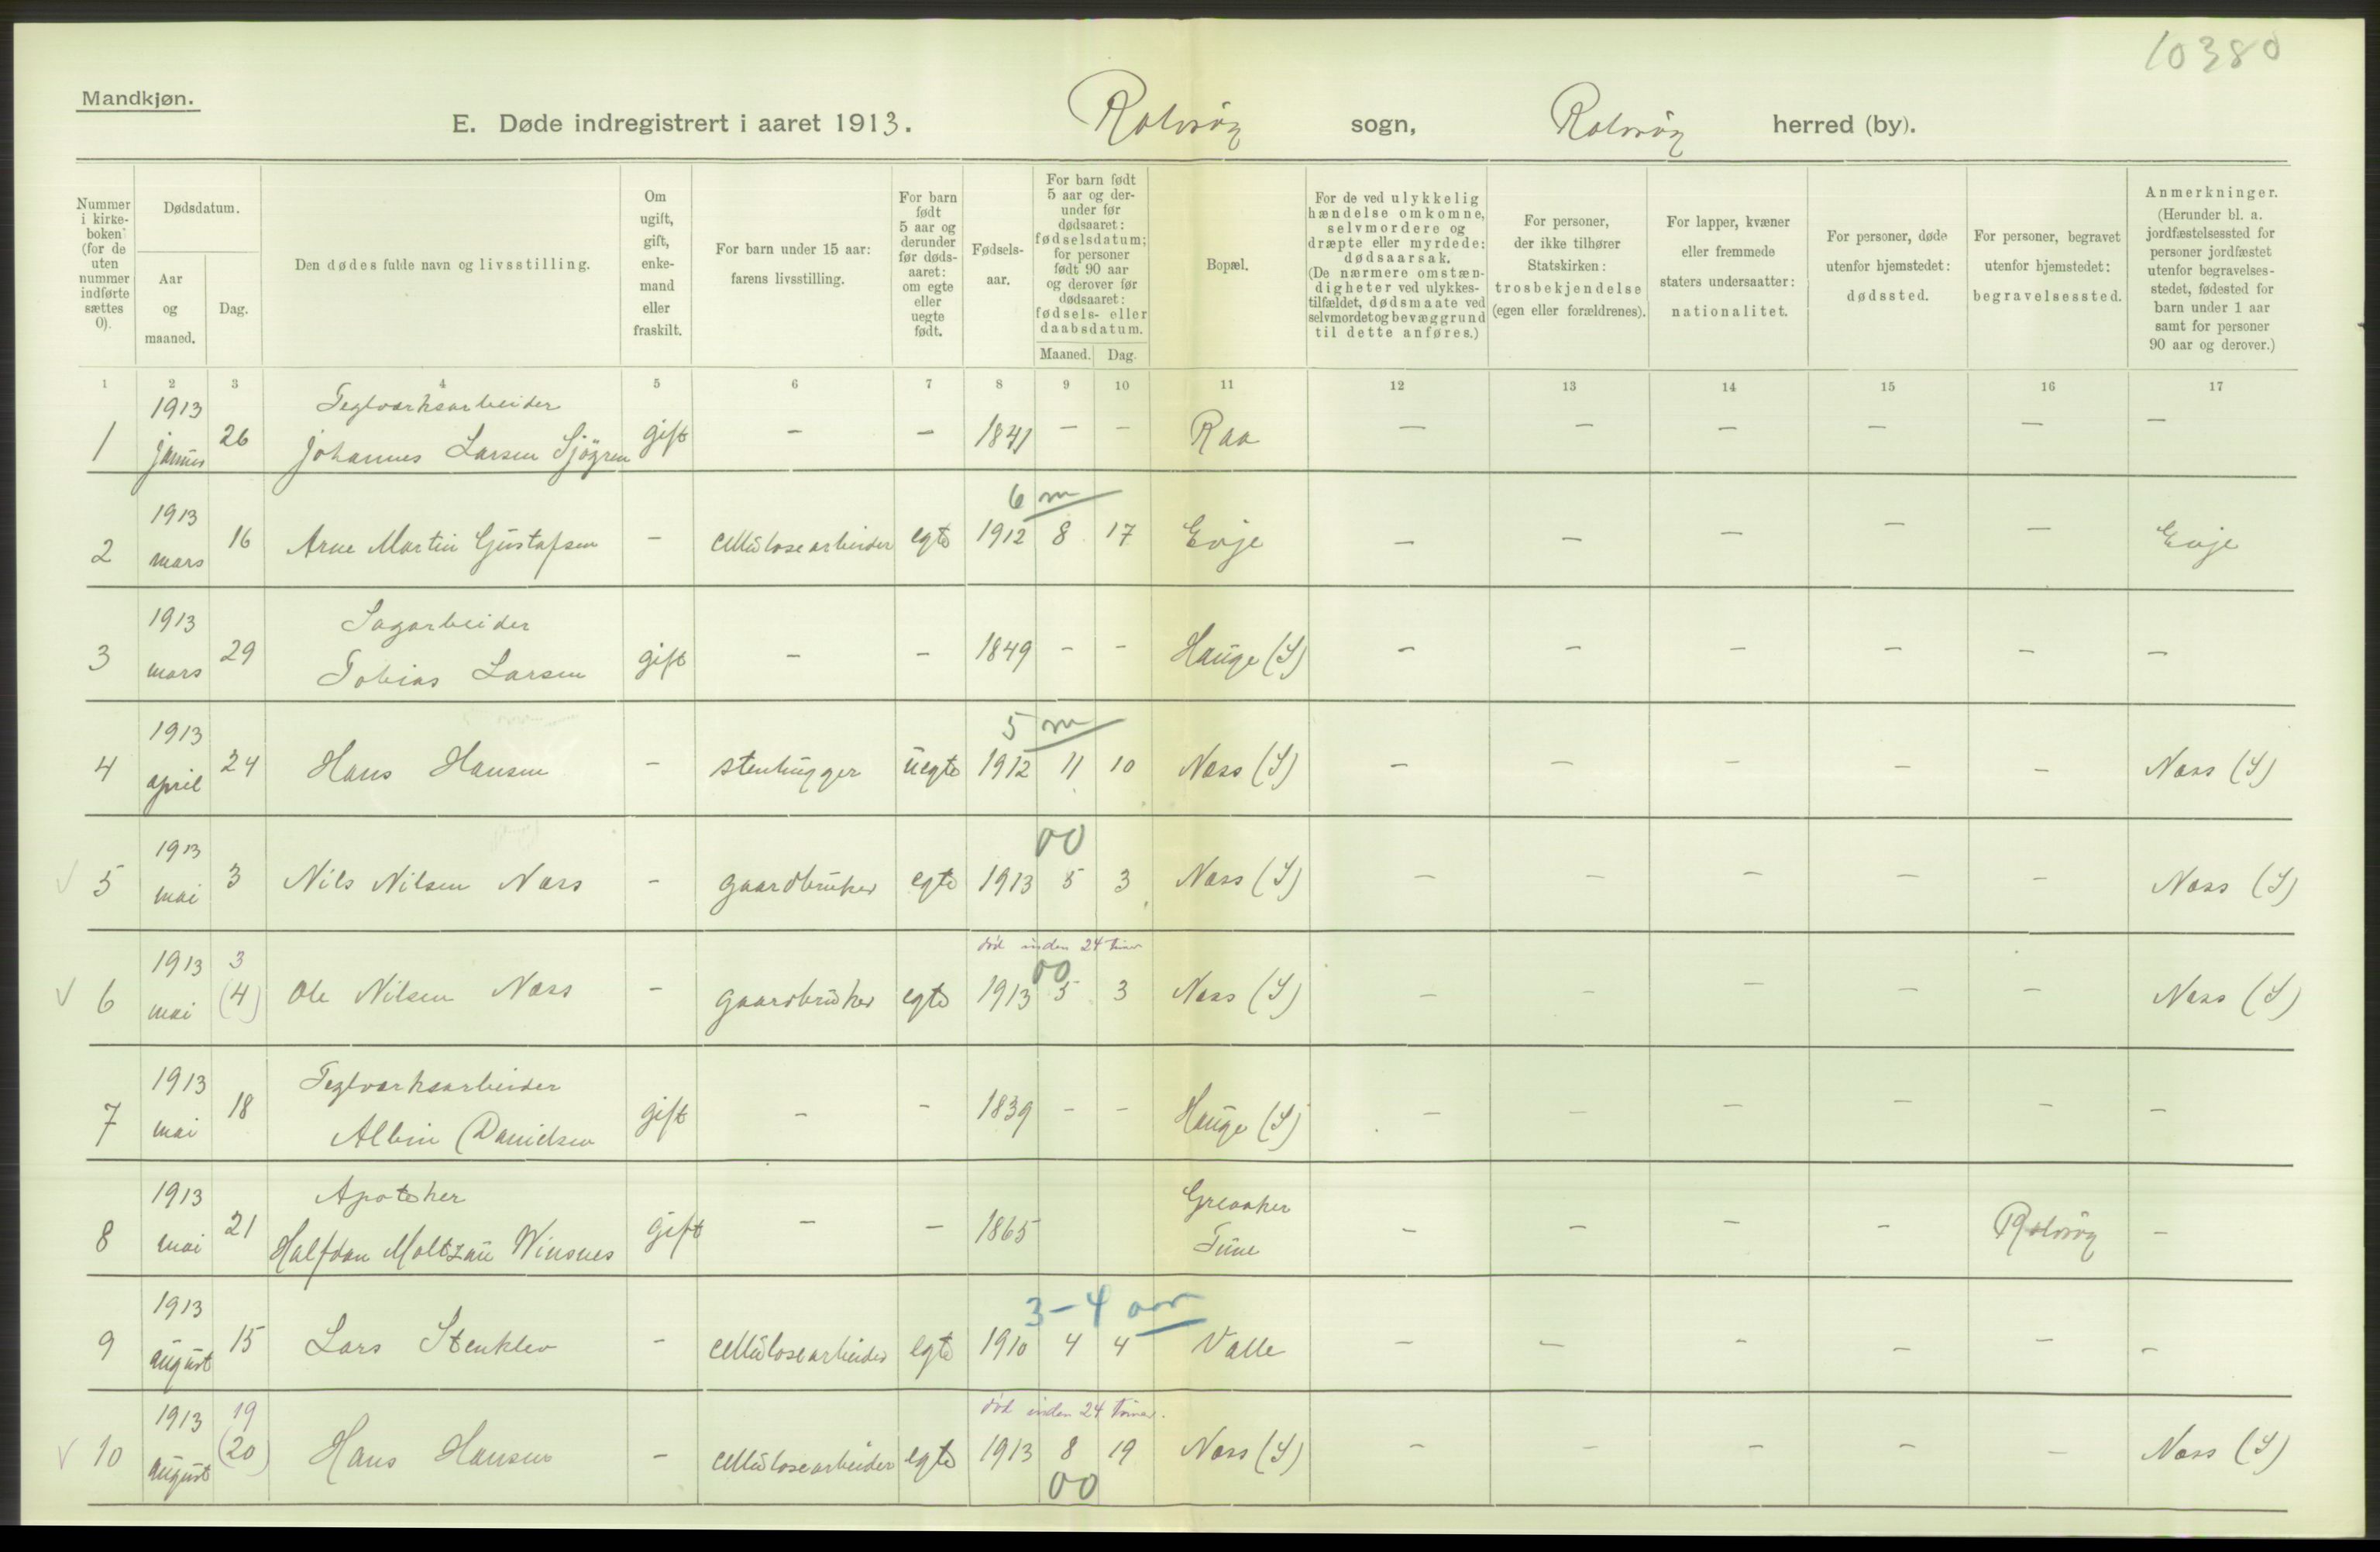 10380
Mandkjøn.
E. Døde indregistrert i aaret 1913. Rolvsøy sogn, Rolvsøy herred (by).
Nummer i kirke-boken (for de uten nummer indførte sættes 0).
Dødsdatum.
Aar og maaned.
Dag.
Den dødes fulde navn og livsstilling.
Om ugift, gift, enke-mand eller fraskilt.
For barn under 15 aar: farens livsstilling.
For barn født 5 aar og derunder før døds-aaret: om egte eller uegte født.
Fødsels-aar.
For barn født 5 aar og der-under før dødsaaret: fødselsdatum; for personer født 90 aar og derover før dødsaaret: fødsels- eller daabsdatum.
Maaned. Dag.
Bopæl.
For de ved ulykkelig hændelse omkomne, selvmordere og dræpte eller myrdede: dødsaarsak. (De nærmere omstæn-digheter ved ulykkes-tilfældet, dødsmaate ved selvmordet og bevæggrund til dette anføres.)
For personer, der ikke tilhører Statskirken: trosbekjendelse (egen eller forældrenes).
For lapper, kvæner eller fremmede staters undersaatter: nationalitet.
For personer, døde utenfor hjemstedet: dødssted.
For personer, begravet utenfor hjemstedet: begravelsessted.
Anmerkninger. (Herunder bl. a. jordfæstelsessted for personer jordfæstet utenfor begravelses-stedet, fødested for barn under 1 aar samt for personer 90 aar og derover.)
1 2 3 4 5 6 7 8 9 10 11 12 13 14 15 16 17
1913 Teglværksarbeider
1 januar 26 Johannes Larsen Sjögren gift – – 1841 – – Raa – – – – – –
6 m
1913
2 mars 16 Arne Martin Gustafsen – cellulosearbeider egte 1912 8 17 Evje – – – – – Evje
1913 Sagarbeider
3 mars 29 Tobias Larsen gift – – 1849 – – Hauge (S) – – – – – –
5 m
1913
4 april 24 Hans Hansen – stenhugger uegte 1912 11 10 Næss (S) – – – – – Næss (S)
00
1913
5 mai 3 Nils Nilsen Næss – gaardbruker egte 1913 5 3 Næss (S) – – – – – Næss (S)
død inden 24 timer
00
1913 3
6 mai (4) Ole Nilsen Næss – gaardbruker egte 1913 5 3 Næss (S) – – – – – Næss (S)
1913 Teglværksarbeider
7 mai 18 Albin Danielsen gift – – 1839 – – Hauge (S) – – – – – –
1913 Apoteker Greaaker
8 mai 21 Halfdan Moltzau Winsnes gift – – 1865 Tune – – – – Rolvsøy –
3-4 aar
1913
9 august 15 Lars Stenklev – cellulosearbeider egte 1910 4 4 Valle – – – – – –
død inden 24 timer.
1913 19
10 august (20) Hans Hansen – cellulosearbeider egte 1913 8 19 Næss (S) – – – – – Næss (S)
00